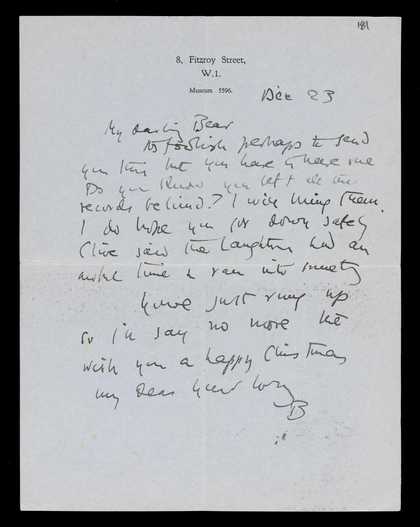 181
8, Fitzroy Street,
W.1.
Museum 5596.
Dec 23
My darling Bear
foolish perhaps to send
you this but you have to have one
Do you know you left all the
records behind? I will bring them.
I do hope you got down safely
Clive said the Laughtons had an
awful time & ran into
You've just rung up
so I'll say no more but
wish you a happy Christmas
my dear your loving
B